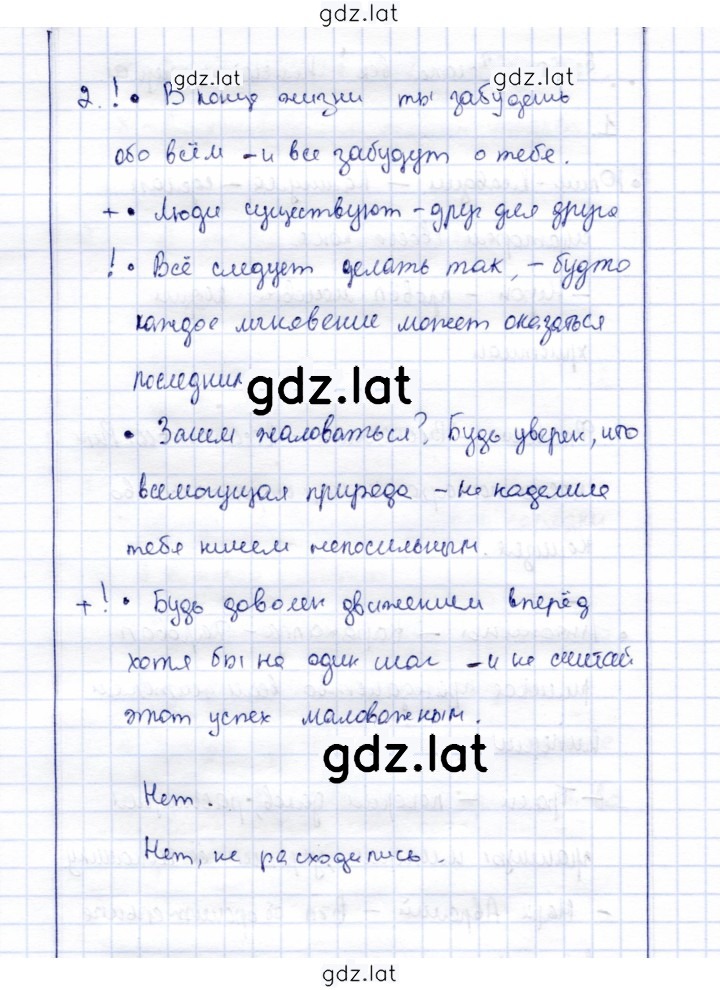 gdz.lat
gdz.lat gdz.lat
2. ! • В конце жизни ты забудешь
обо всём – и все забудут о тебе.
+ • Люди существуют – друг для друга
! • Всё следует делать так, – будто
каждое мгновение может оказаться
последним
gdz.lat
• Зачем жаловаться? Будь уверен, что
всемогущая природа – не наделила
тебя ничем непосильным.
+ ! • Будь доволен движением вперёд
хотя бы на один шаг – и не считай
этот успех маловажным.
gdz.lat
Нет.
Нет, не расходились.
gdz.lat